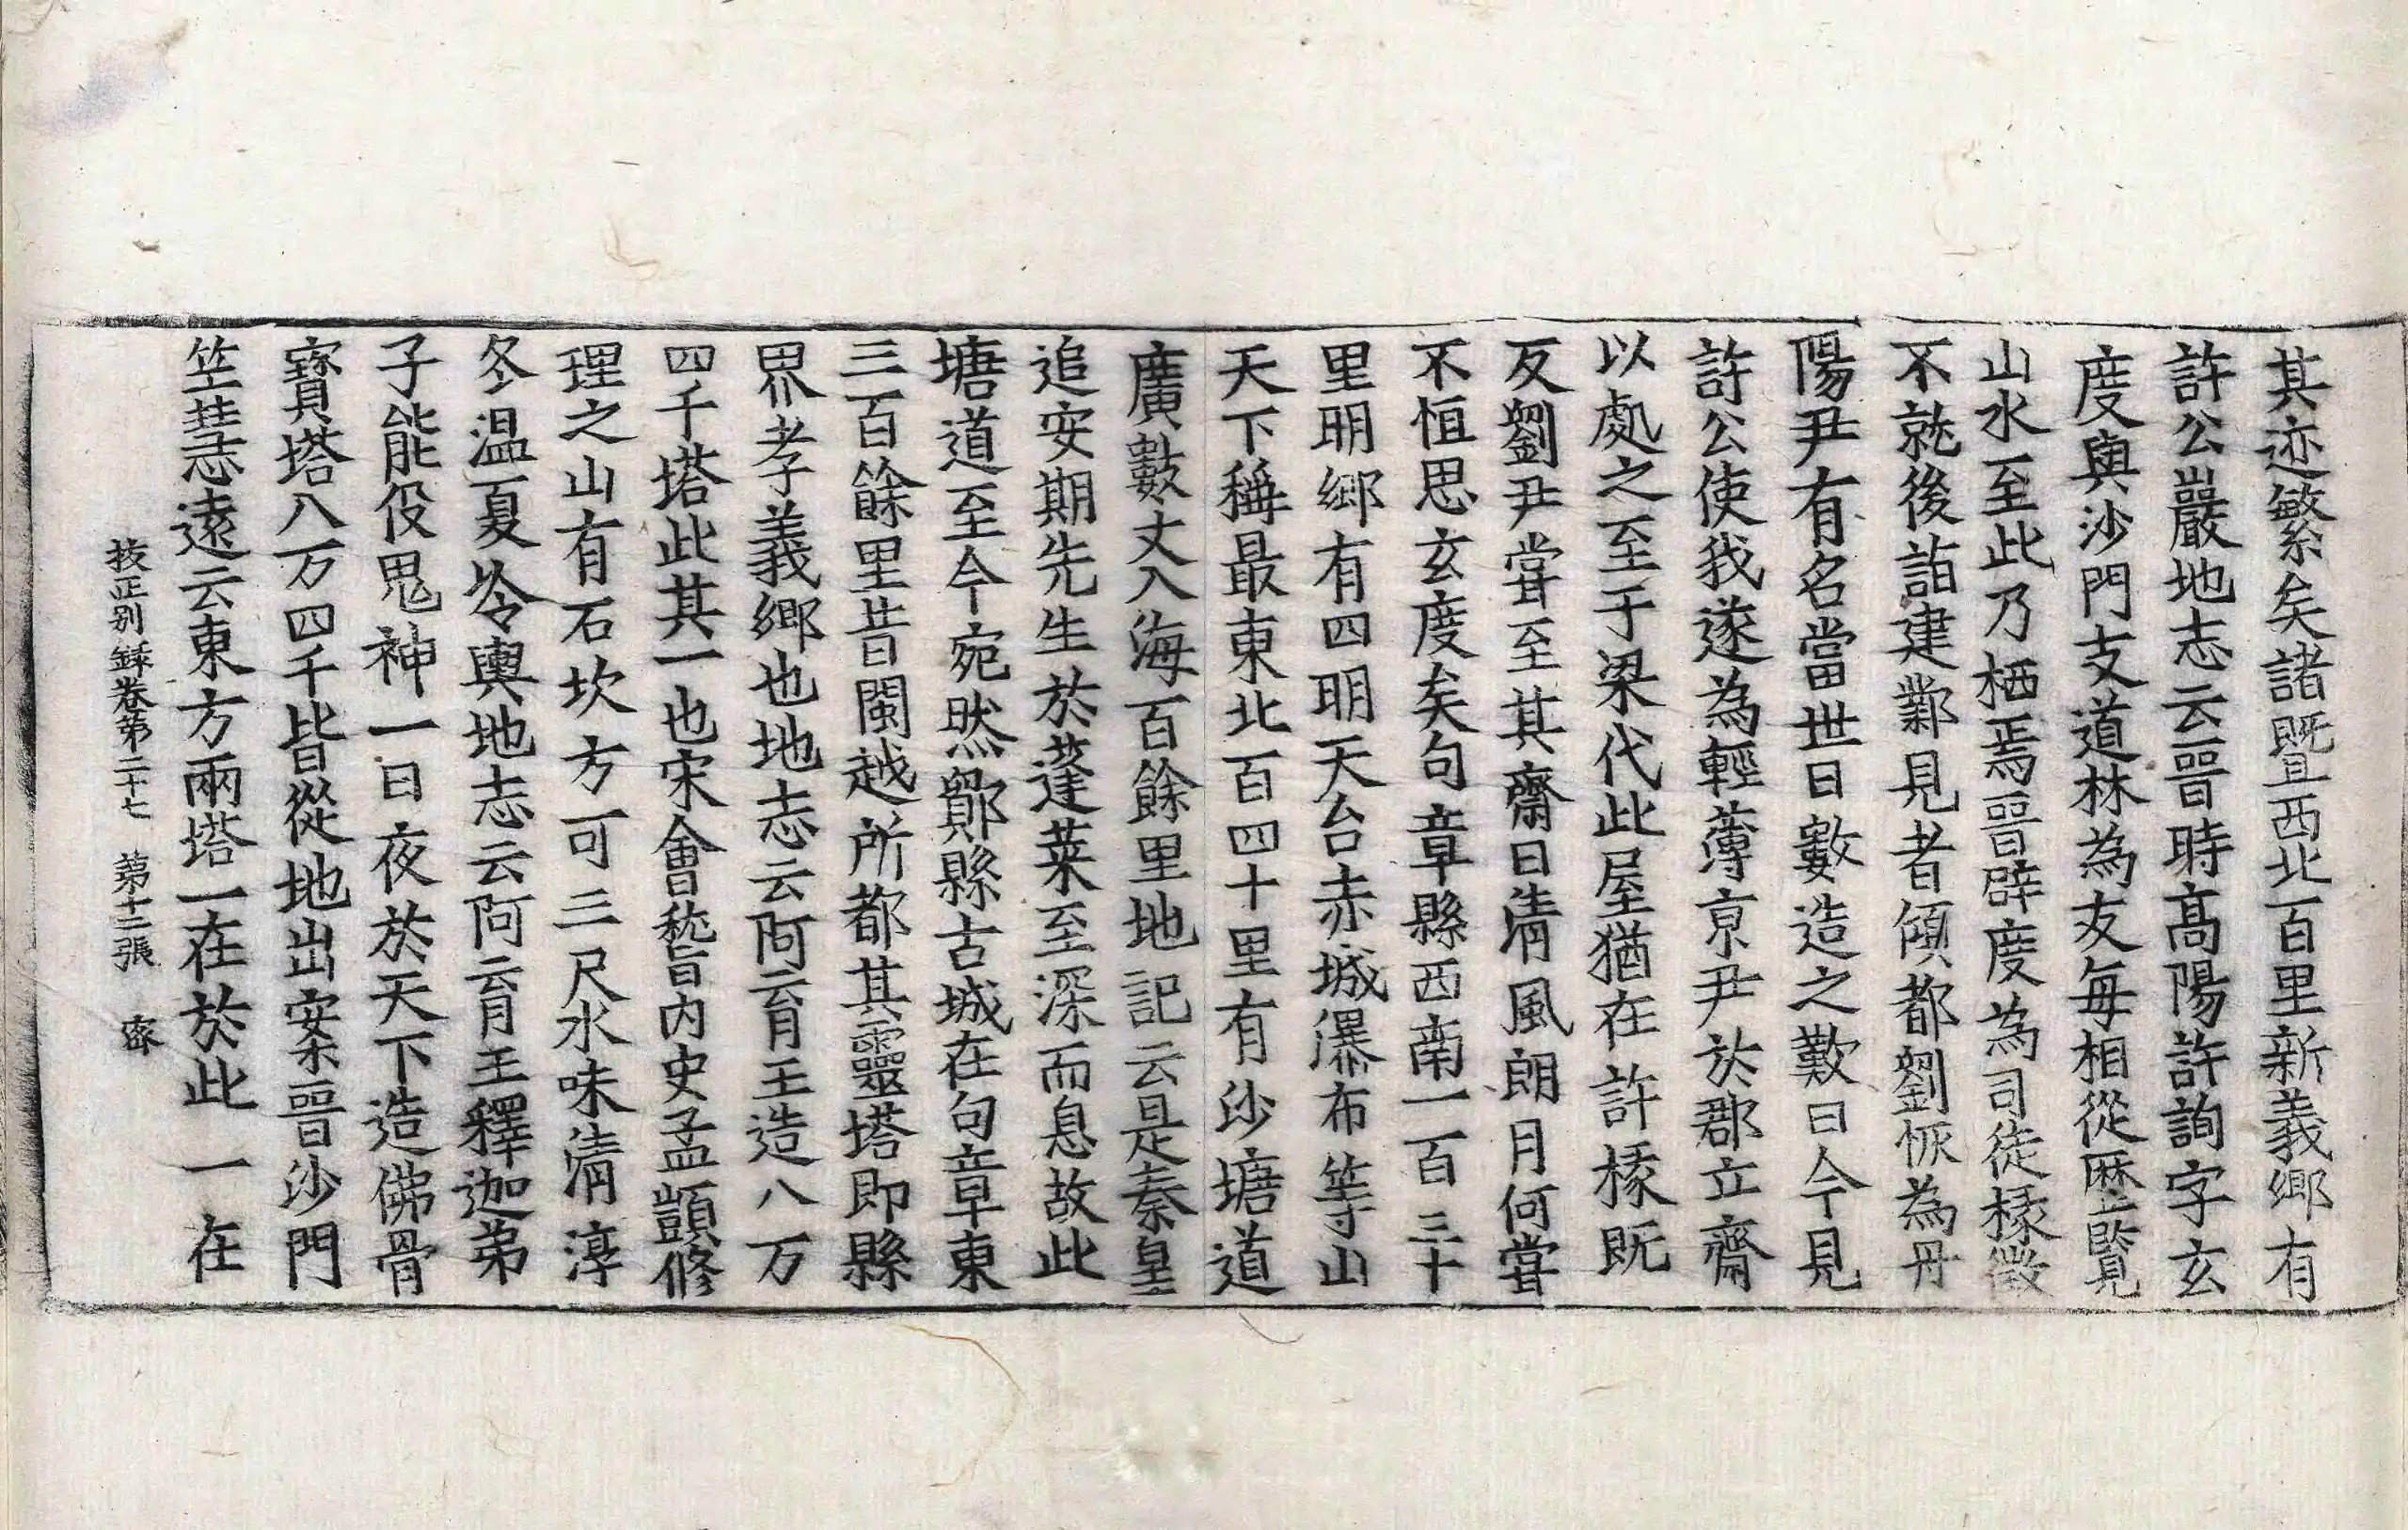 其迹繁矣諸暨西北百里新義鄉有
許公巖地志云晉時高陽許詢字玄
度與沙門支道林為友每相從歷覽
山水至此乃栖焉晉辟度為司徒掾徵
不就後詣建鄴見者傾都劉恢為丹
陽尹有名當世日數造之歎曰今見
許公使我遂為輕薄京尹於郡立齋
以處之至于梁代此屋猶在許掾既
反劉尹嘗至其齋曰清風朗月何嘗
不恒思玄度矣句章縣西南一百三十
里明鄉有四明天台赤城瀑布等山
天下稱最東北百四十里有沙塘道
廣數丈入海百餘里地記云是秦皇
追安期先生於蓬萊至深而息故此
塘道至今宛然鄮縣古城在句章東
三百餘里昔閩越所都其靈塔即縣
界孝義鄉也地志云阿育王造八万
四千塔此其一也宋會稽內史孟顗修
理之山有石坎方可三尺水味清淳
冬溫夏冷輿地志云阿育王釋迦弟
子能役鬼神一日夜於天下造佛骨
寶塔八万四千皆從地出案晉沙門
竺慧遠云東方兩塔一在於此一在
挍正別錄卷第二十七 第十三張 密